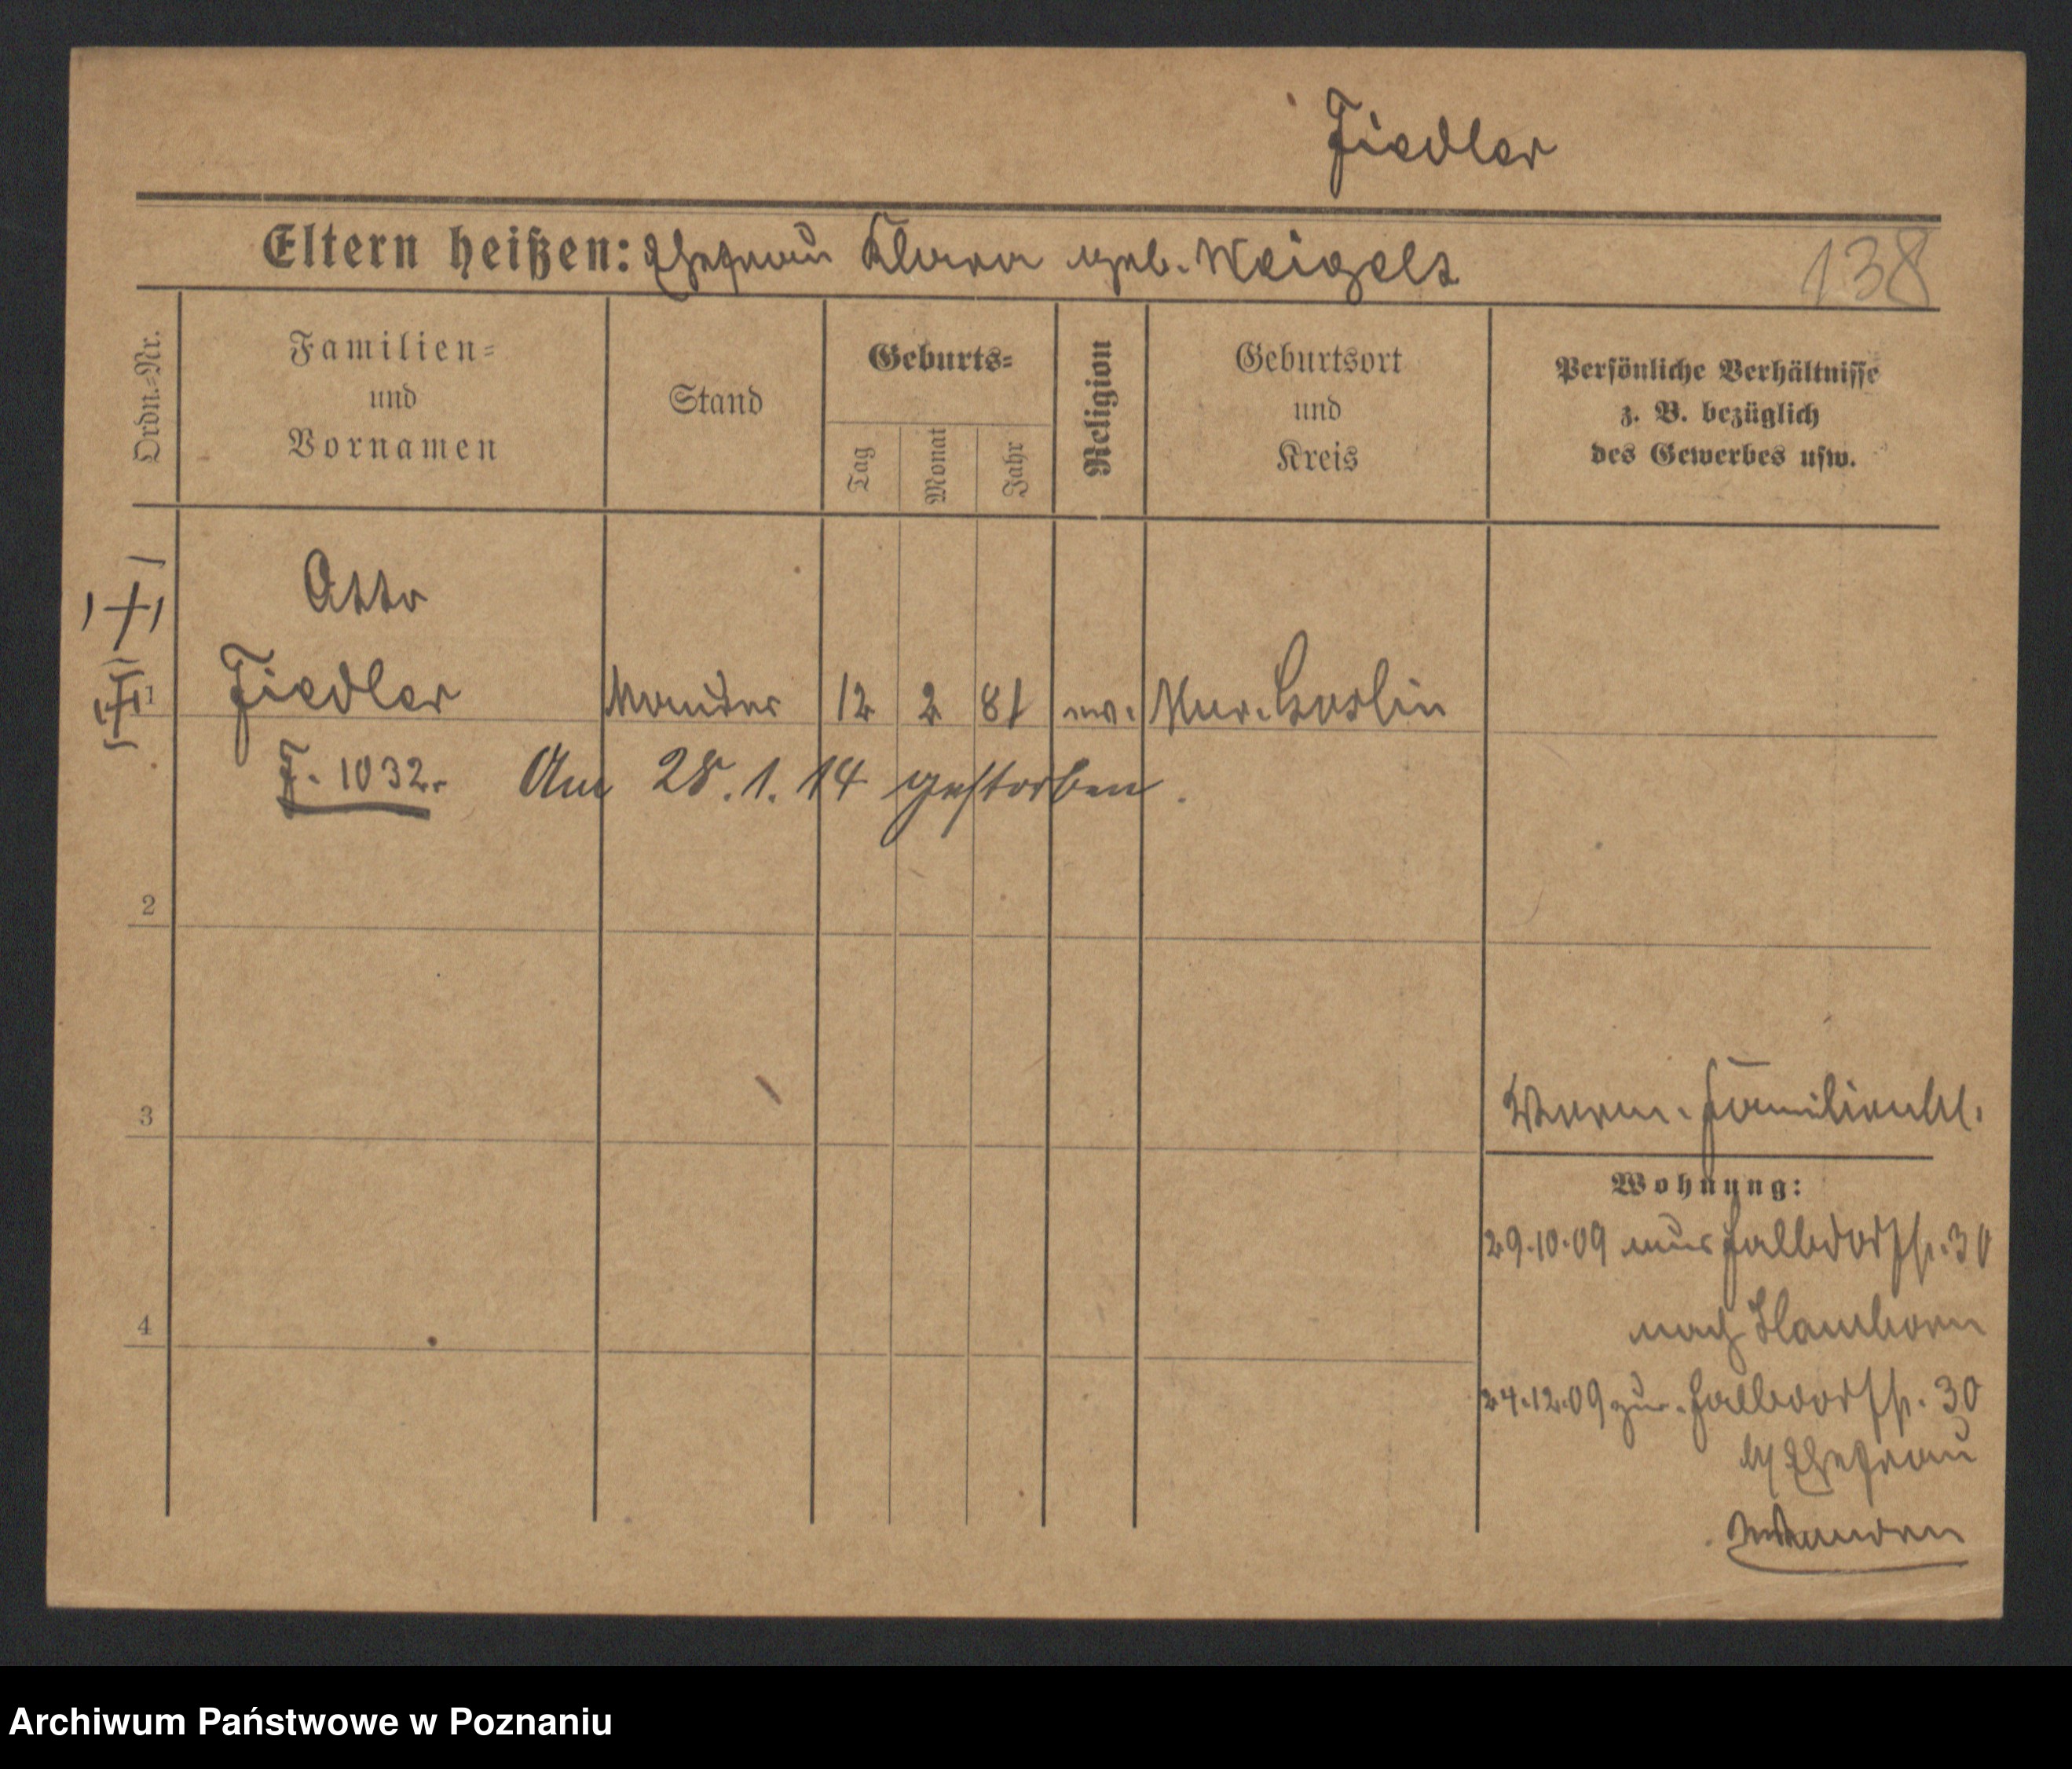 Fiedler
Eltern heißen: Ehefrau Klara geb. Weigelt
138
Ordn.-Nr.
Familien-
und
Vornamen
Stand
Geburts-
Tag
Monat
Jahr
Religion
Geburtsort
und
Kreis
Persönliche Verhältnisse
z. B. bezüglich
des Gewerbes usw.
Otto
1 Fiedler 12 2 81 ev. Mur. Goslin
F. 1032. Am 28.1.14 gestorben.
2
3
Familienbl.
Wohnung:
29.10.09 aus 30
nach Hamborn
4
24.12.09 zur. 30
Ehefrau